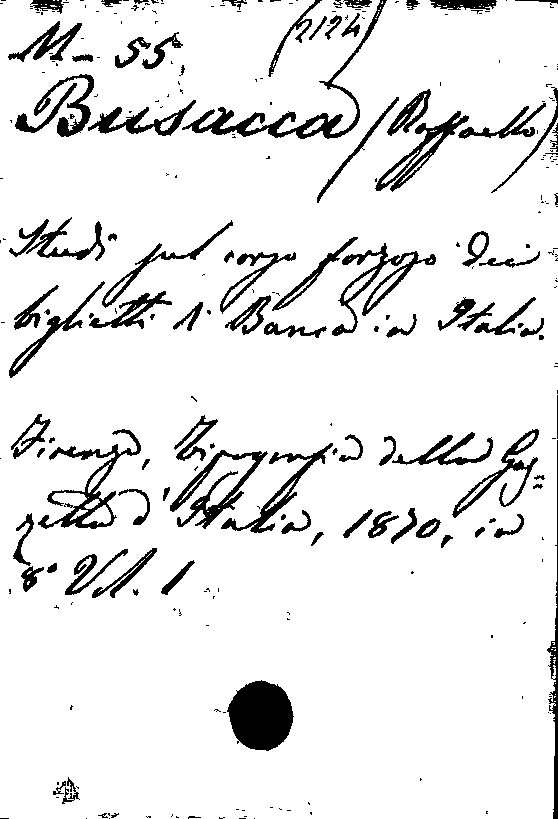 M-55 (2124)
Busacca (Raffaello)
Studi sul corso forzoso dei
biglietti di Banca in Italia.
Firenze, Tipografia della Gaz=
zetta d'Italia, 1870, in
8° Vol. 1